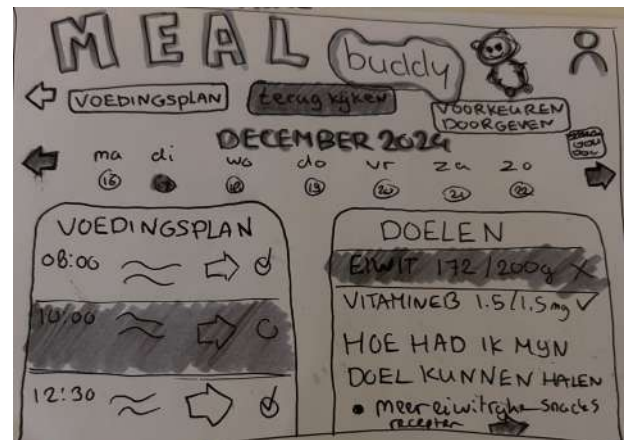 MEAL buddy
VOEDINGSPLAN terug kijken VOORKEUREN DOORGEVEN
DECEMBER 2024
ma di wo do vr za zo
16 18 19 20 21 22
VOEDINGSPLAN
08:00
10:00
12:30
DOELEN
EIWIT 172/200g X
VITAMINEB 1.5/1.5mg ✓
HOE HAD IK MYN
DOEL KUNNEN HALEN
• meer eiwitryke snacks
recepten